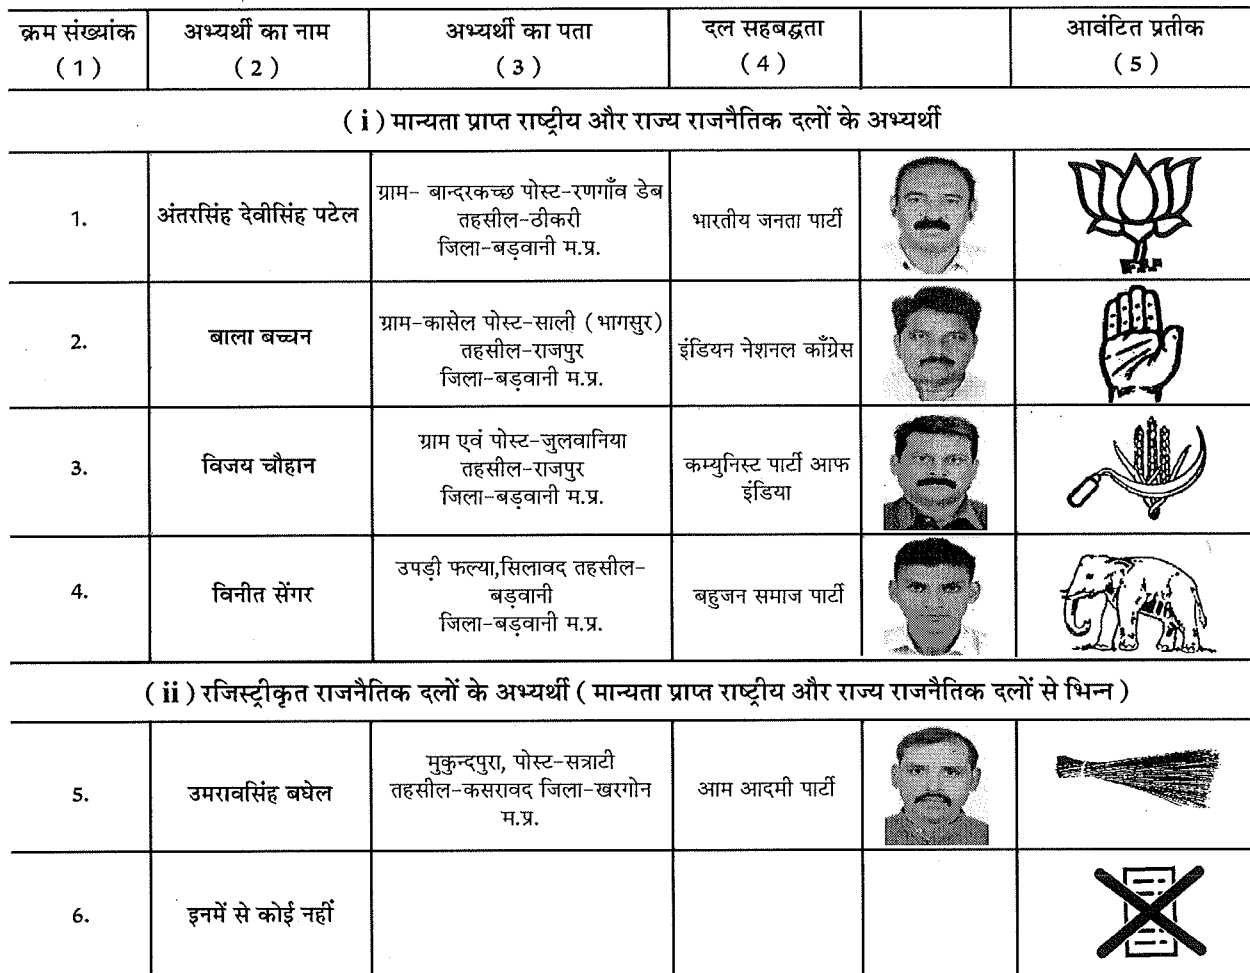 क्रम संख्यांक अभ्यर्थी का नाम अभ्यर्थी का पता दल सहबद्धता आवंटित प्रतीक
( 1 ) ( 2 ) ( 3 ) ( 4 ) ( 5 )
( i ) मान्यता प्राप्त राष्ट्रीय और राज्य राजनैतिक दलों के अभ्यर्थी
1.
अंतरसिंह देवीसिंह पटेल
ग्राम- बान्दरकच्छ पोस्ट-रणगाँव डेब
तहसील-ठीकरी
जिला-बड़वानी म.प्र.
भारतीय जनता पार्टी
2.
बाला बच्चन
ग्राम-कासेल पोस्ट-साली ( भागसुर)
तहसील-राजपुर
जिला-बड़वानी म.प्र.
इंडियन नेशनल काँग्रेस
3.
विजय चौहान
ग्राम एवं पोस्ट-जुलवानिया
तहसील-राजपुर
जिला-बड़वानी म.प्र.
कम्युनिस्ट पार्टी आफ
इंडिया
4.
विनीत सेंगर
उपड़ी फल्या,सिलावद तहसील-
बड़वानी
जिला-बड़वानी म.प्र.
बहुजन समाज पार्टी
( ii ) रजिस्ट्रीकृत राजनैतिक दलों के अभ्यर्थी ( मान्यता प्राप्त राष्ट्रीय और राज्य राजनैतिक दलों से भिन्न )
5.
उमरावसिंह बघेल
मुकुन्दपुरा, पोस्ट-सत्राटी
तहसील-कसरावद जिला-खरगोन
म.प्र.
आम आदमी पार्टी
6.
इनमें से कोई नहीं